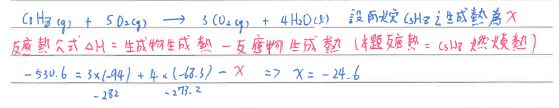 C3H8(g) + 5O2(g) → 3CO2(g) + 4H2O(l) 設丙烷C3H8之生成熱為X
反應熱公式 ΔH = 生成物生成熱 - 反應物生成熱 (本題反應熱 = C3H8 燃燒熱)
-530.6 = 3×(-94) + 4×(-68.3) - X => X = -24.6
-282 -273.2